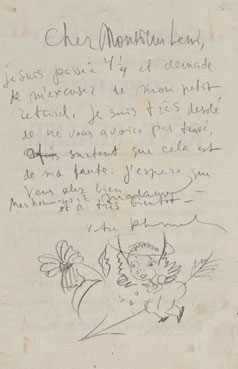 Cher Monsieur Lewi,
je suis passé à 4 1/4 et demande
de m'excuser de mon petit
retard. Je suis très desolé
de ne vous avoir pas trouvé,
surtout que cela est
de ma faute. J'espere que
Vous allez bien
Mes hommages à Madame
et à très bientot —
votre